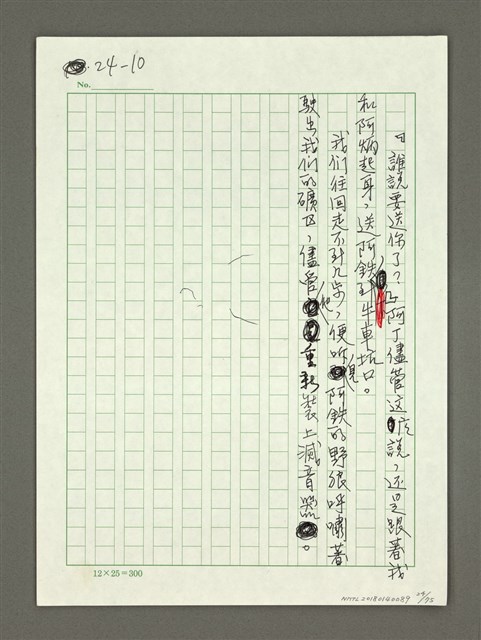 24-10
No.
「誰説要送你了?」阿丁儘管这麽説,还是跟着我
和阿炳起身,送阿鉄到牛車坑口。
我们往回走不到几步,便听見阿鉄的野狼呼嘯着
駛出我们的礦区,儘管他重新裝上減音器。
12×25=300
NMTL20180140089 24/75